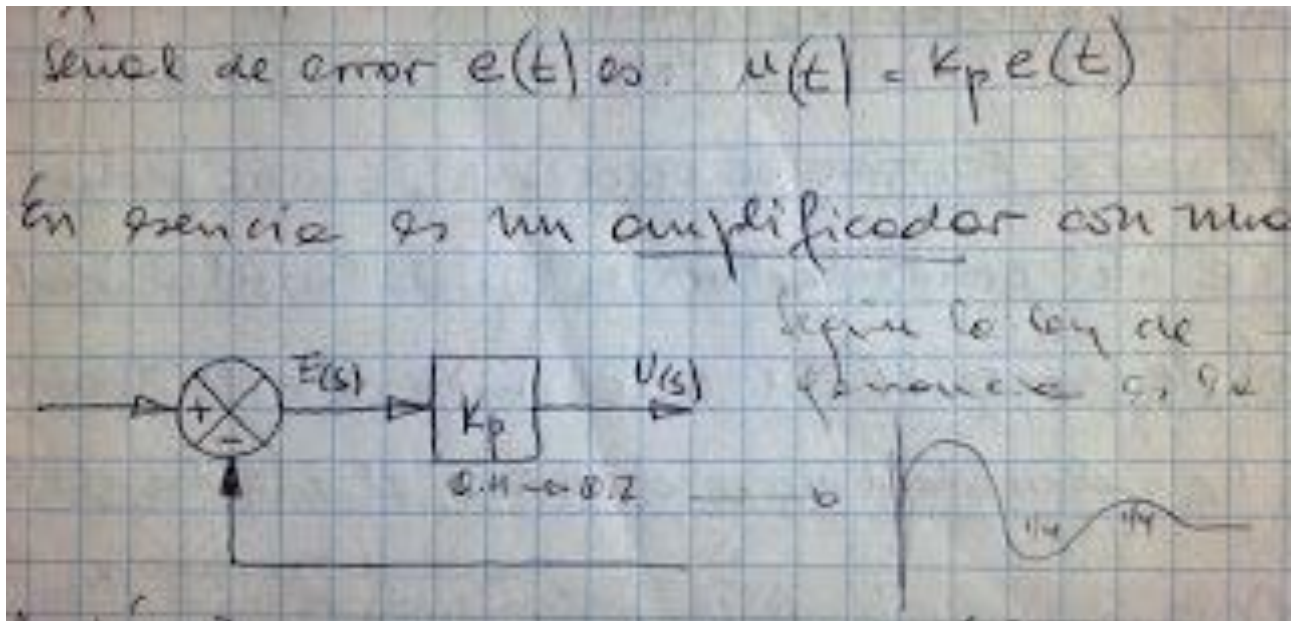 señal de error e(t) es: u(t) = Kp e(t)
En esencia es un amplificador con una
según la ley de
es
E(s)
U(s)
+
-
Kp
1/4
1/4